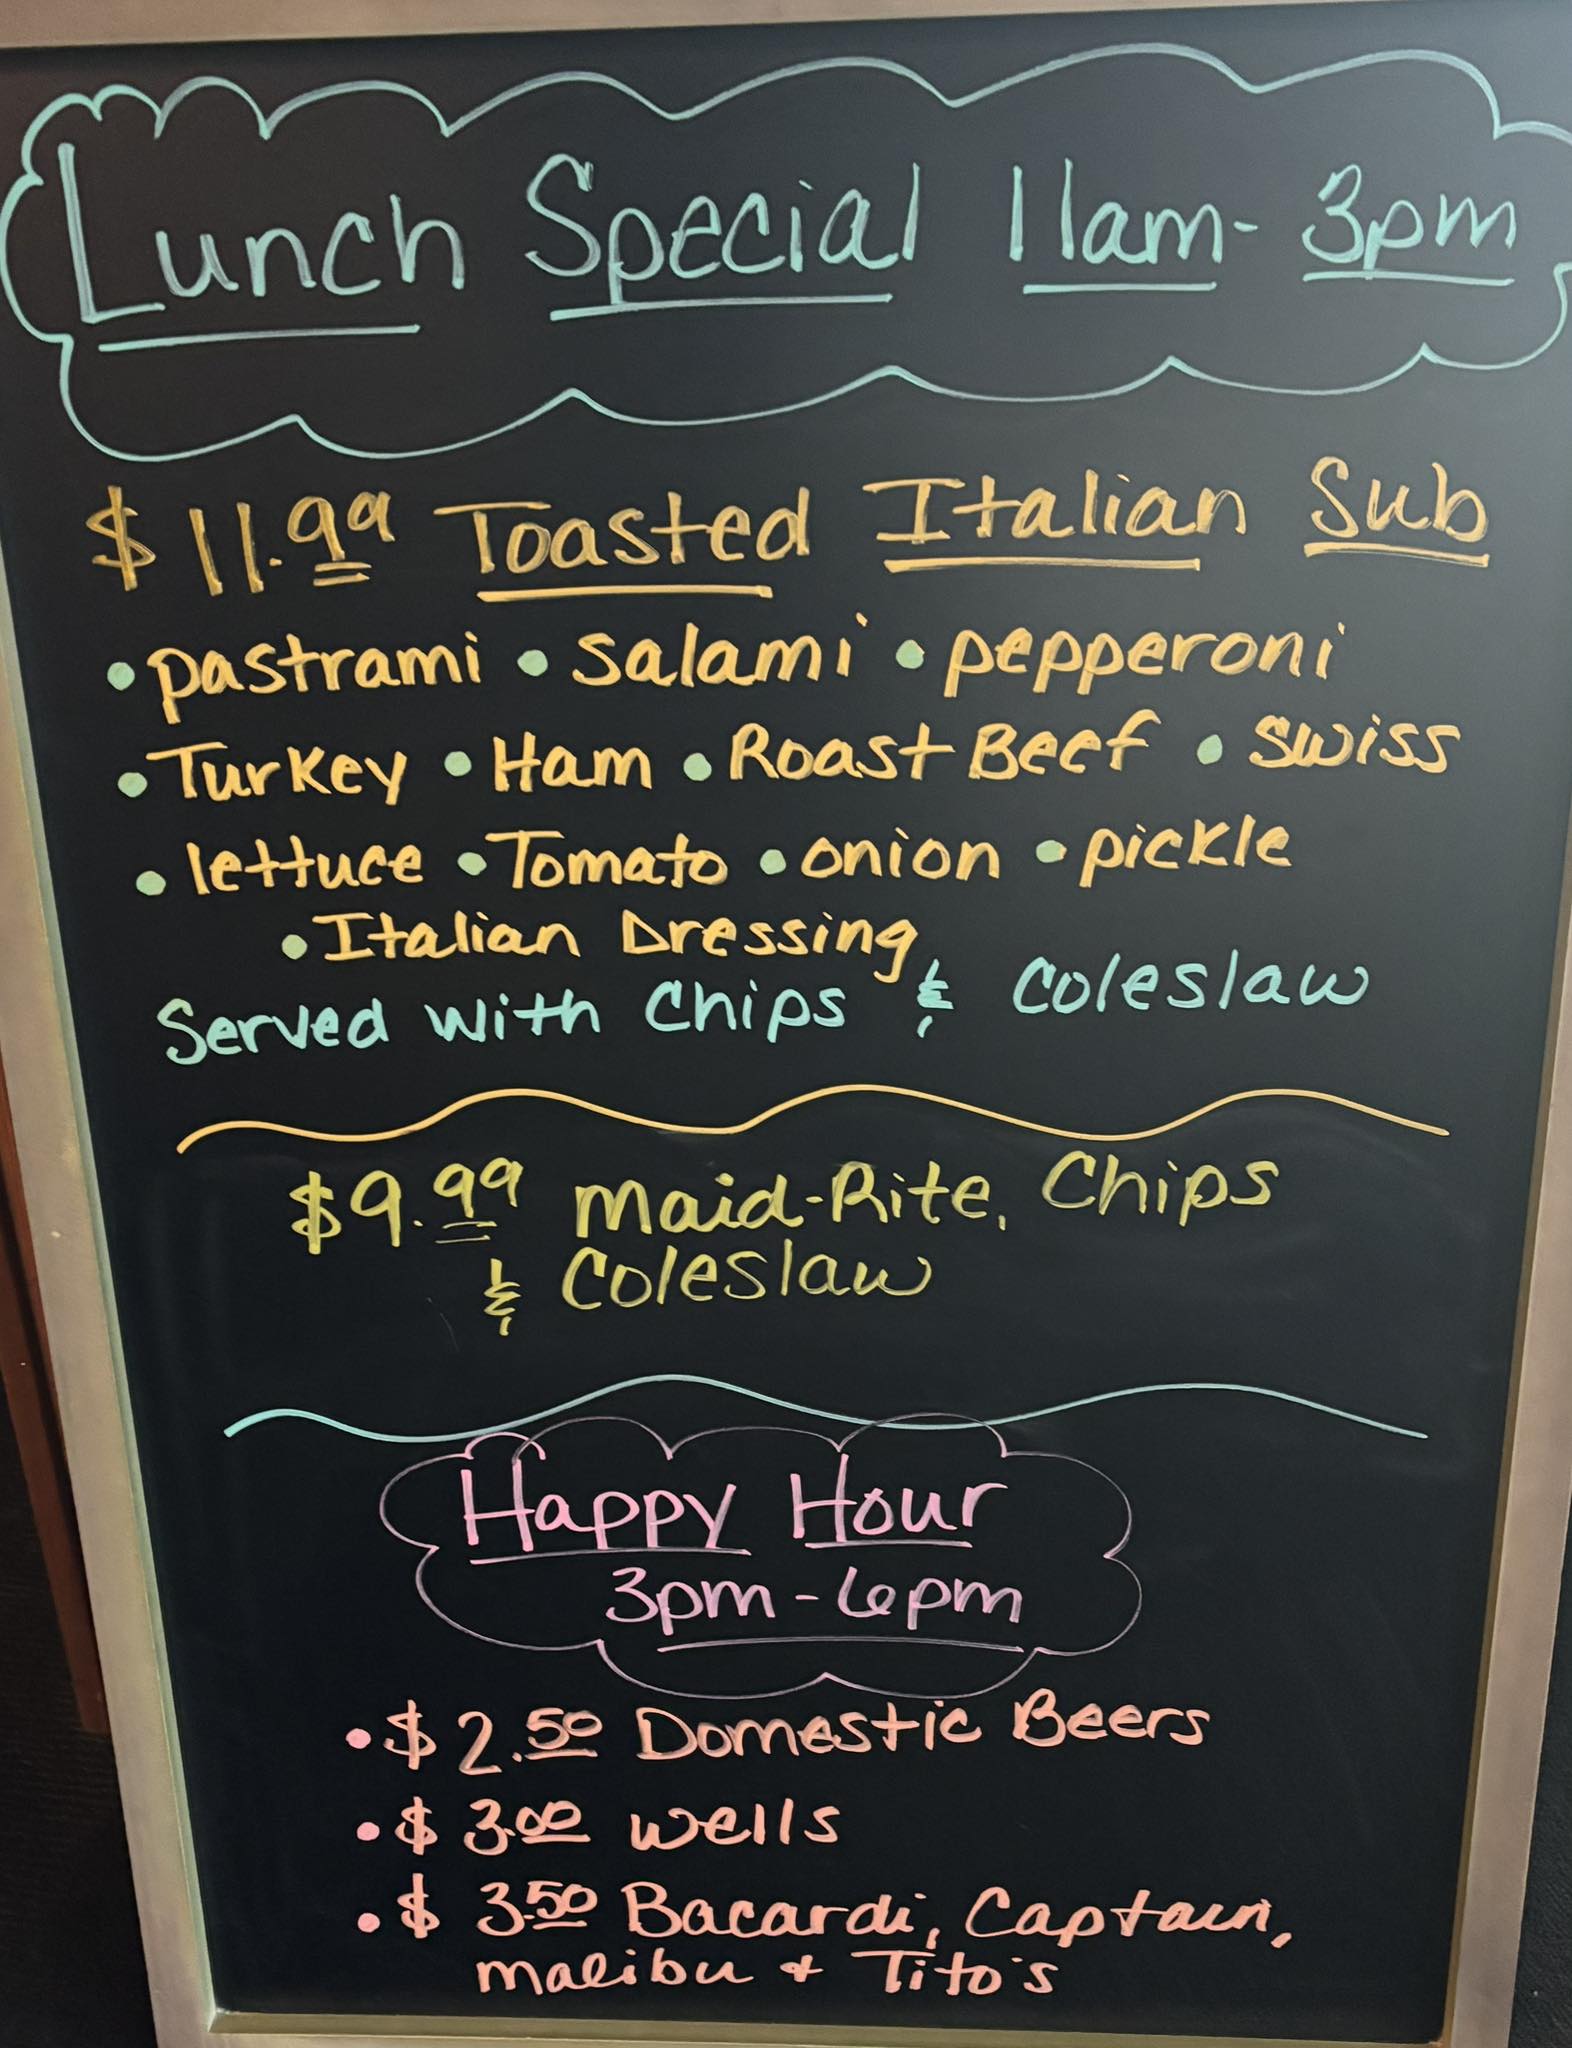 Lunch Special 11am-3pm
$11.99 Toasted Italian Sub
• pastrami • salami • pepperoni
• Turkey • Ham • Roast Beef • Swiss
• lettuce • Tomato • onion • pickle
• Italian Dressing
Served with Chips & Coleslaw
$9.99 Maid-Rite, Chips
& Coleslaw
Happy Hour
3pm-6pm
• $2.50 Domestic Beers
• $3.00 wells
• $3.50 Bacardi, Captain,
malibu + Tito's